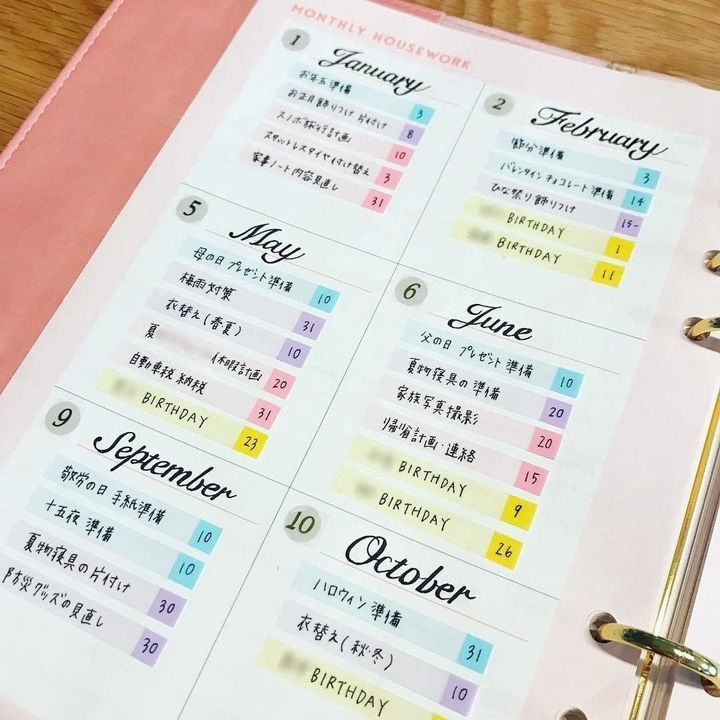 MONTHLY HOUSEWORK
1
January
お年玉準備 3
お正月飾りつけ 片付け 8
スノボ旅行計画 10
スタットレスタイヤ付け替え 3
家事ノート内容見直し 31
2
February
節分準備 3
バレンタインチョコレート準備 14
ひな祭り飾りつけ 15-
BIRTHDAY 1
BIRTHDAY 11
5
May
母の日 プレゼント準備 10
梅雨対策 31
衣替え(春夏) 10
夏 休暇計画 20
自動車税 納税 31
BIRTHDAY 23
6
June
父の日 プレゼント 準備 10
夏物寝具の準備 20
家族写真撮影 20
帰省計画・連絡 15
BIRTHDAY 9
BIRTHDAY 26
9
September
敬労の日 手紙準備 10
十五夜 準備 10
夏物寝具の片付け 30
防災グッズの見直し 30
10
October
ハロウィン準備 31
衣替え(秋・冬) 10
BIRTHDAY